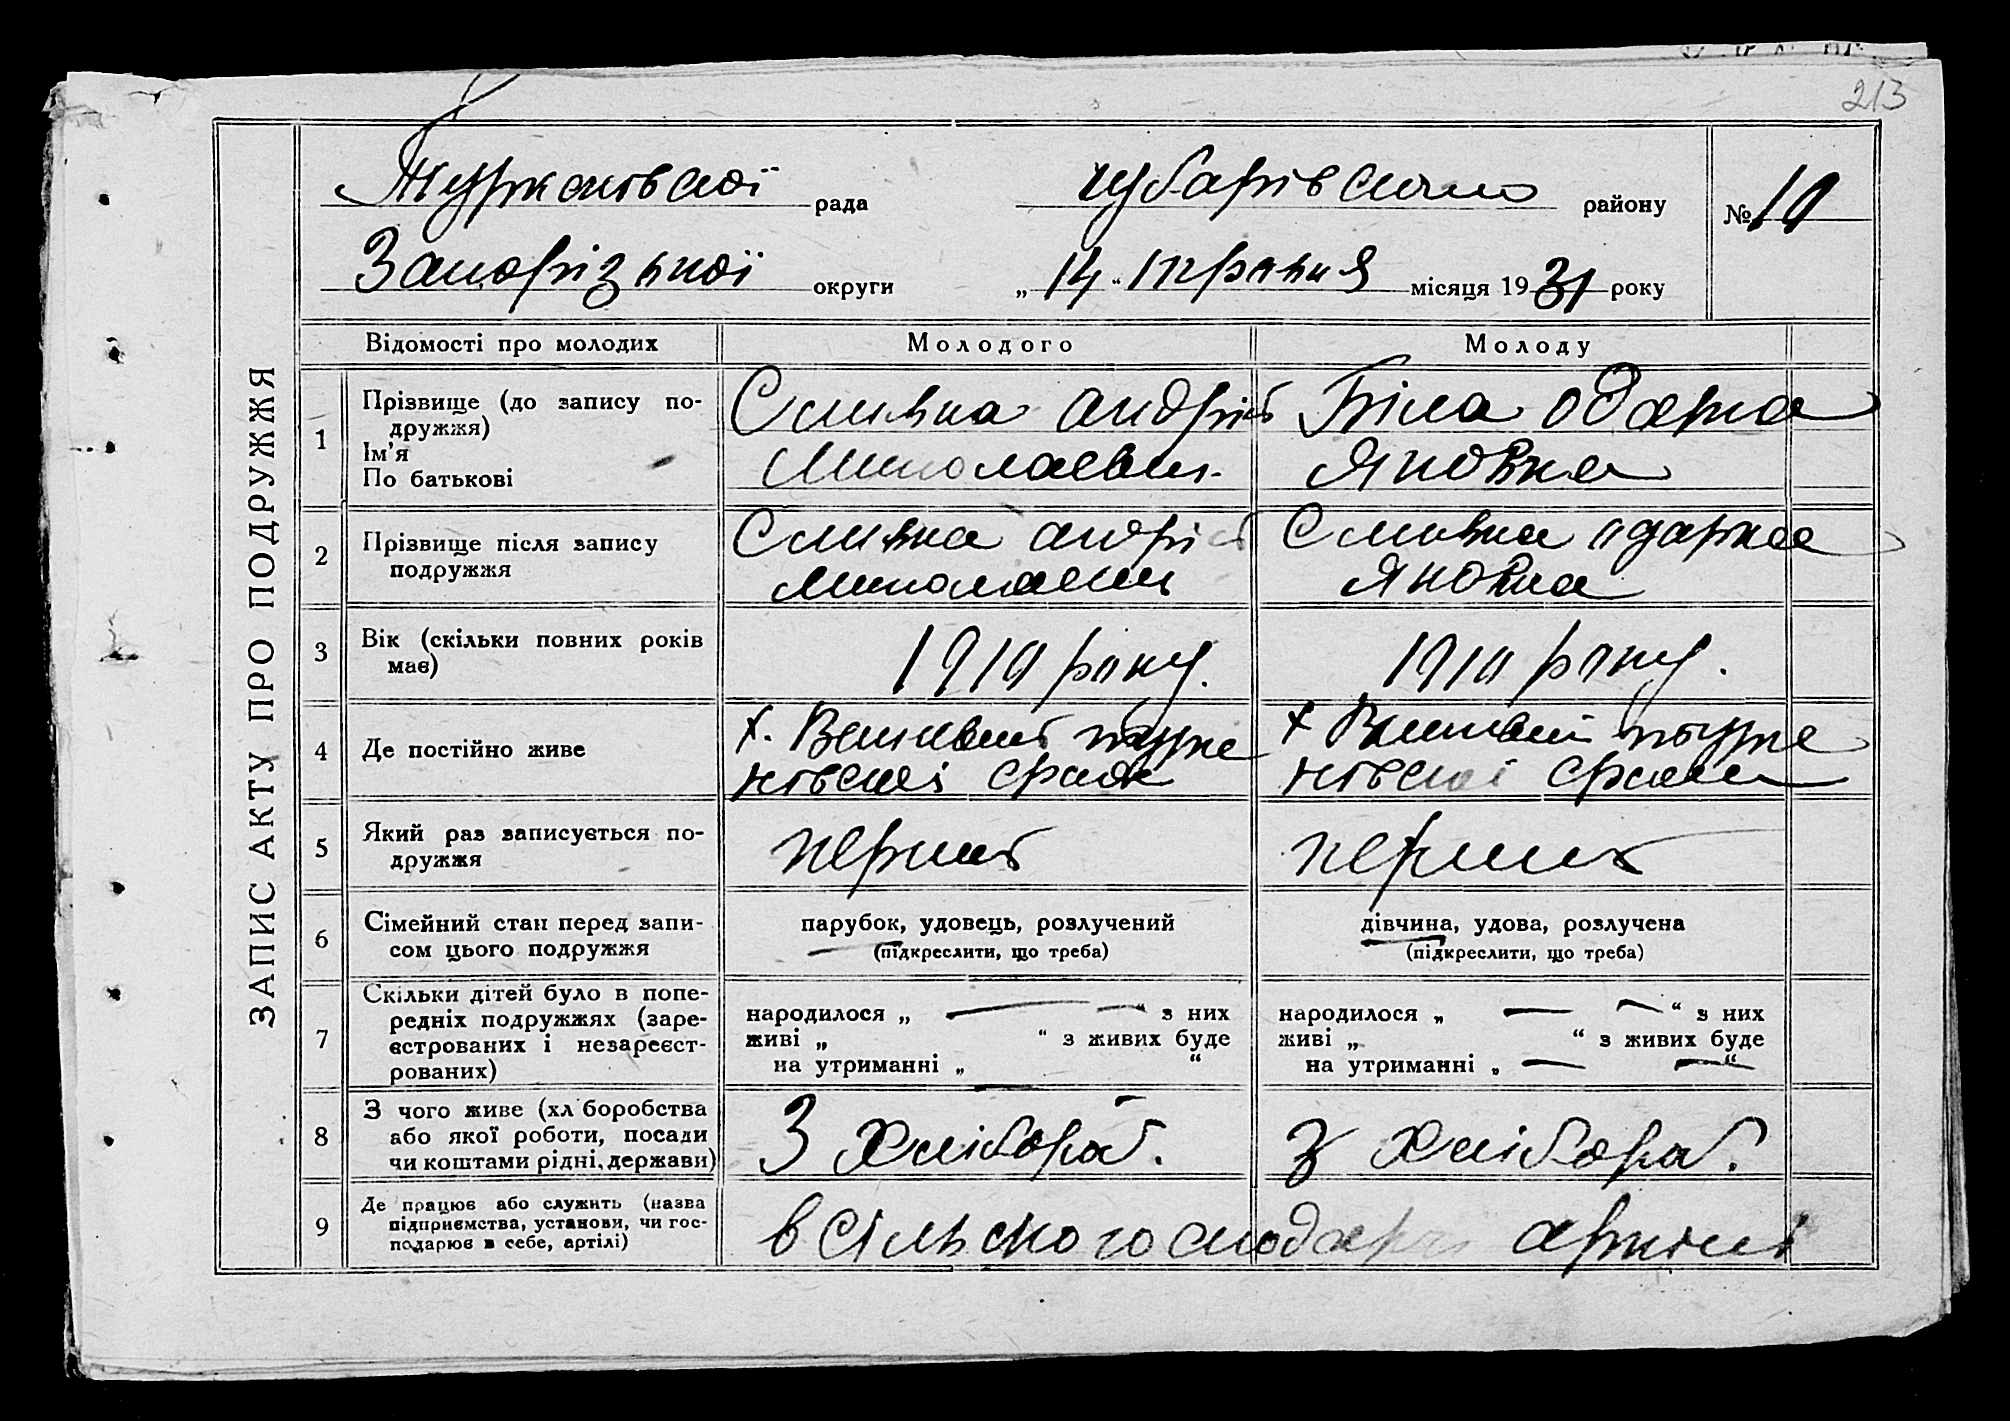 213
ЗАПИС АКТУ ПРО ПОДРУЖЖЯ
Туркенівської рада
Чубарівського району
№ 10
Запорізької округи
„14“ травня місяця 1931 року
Відомості про молодих
Молодого
Молоду
1
Прізвище (до запису по-
дружжя)
Ім’я
По батькові
Сливка Андрій
Миколаевич
Біла Одарка
Яковна
2
Прізвище після запису
подружжя
Сливка Андрій
Миколаевич
Сливка Одарка
Яковна
3
Вік (скільки повних років
має)
1910 року.
1910 року.
4
Де постійно живе
х. Турке
нівскої сради
х Турке
нівскої сради
5
Який раз записується по-
дружжя
перший
перший
6
Сімейний стан перед запи-
сом цього подружжя
парубок, удовець, розлучений
(підкреслити, що треба)
дівчина, удова, розлучена
(підкреслити, що треба)
7
Скільки дітей було в попе-
редніх подружжях (заре-
єстрованих і незареєст-
рованих)
народилося „ — — “ з них
живі „ “ з живих буде
на утриманні „ — “
народилося „ — — “ з них
живі „ “ з живих буде
на утриманні „ — — “
8
З чого живе (хліборобства
або якої роботи, посади
чи коштами рідні, держави)
З хлібора.
З хлібора.
9
Де працює або служить (назва
підприємства, установи, чи гос-
подарює в себе, артілі)
в сільскогосподарч артілі